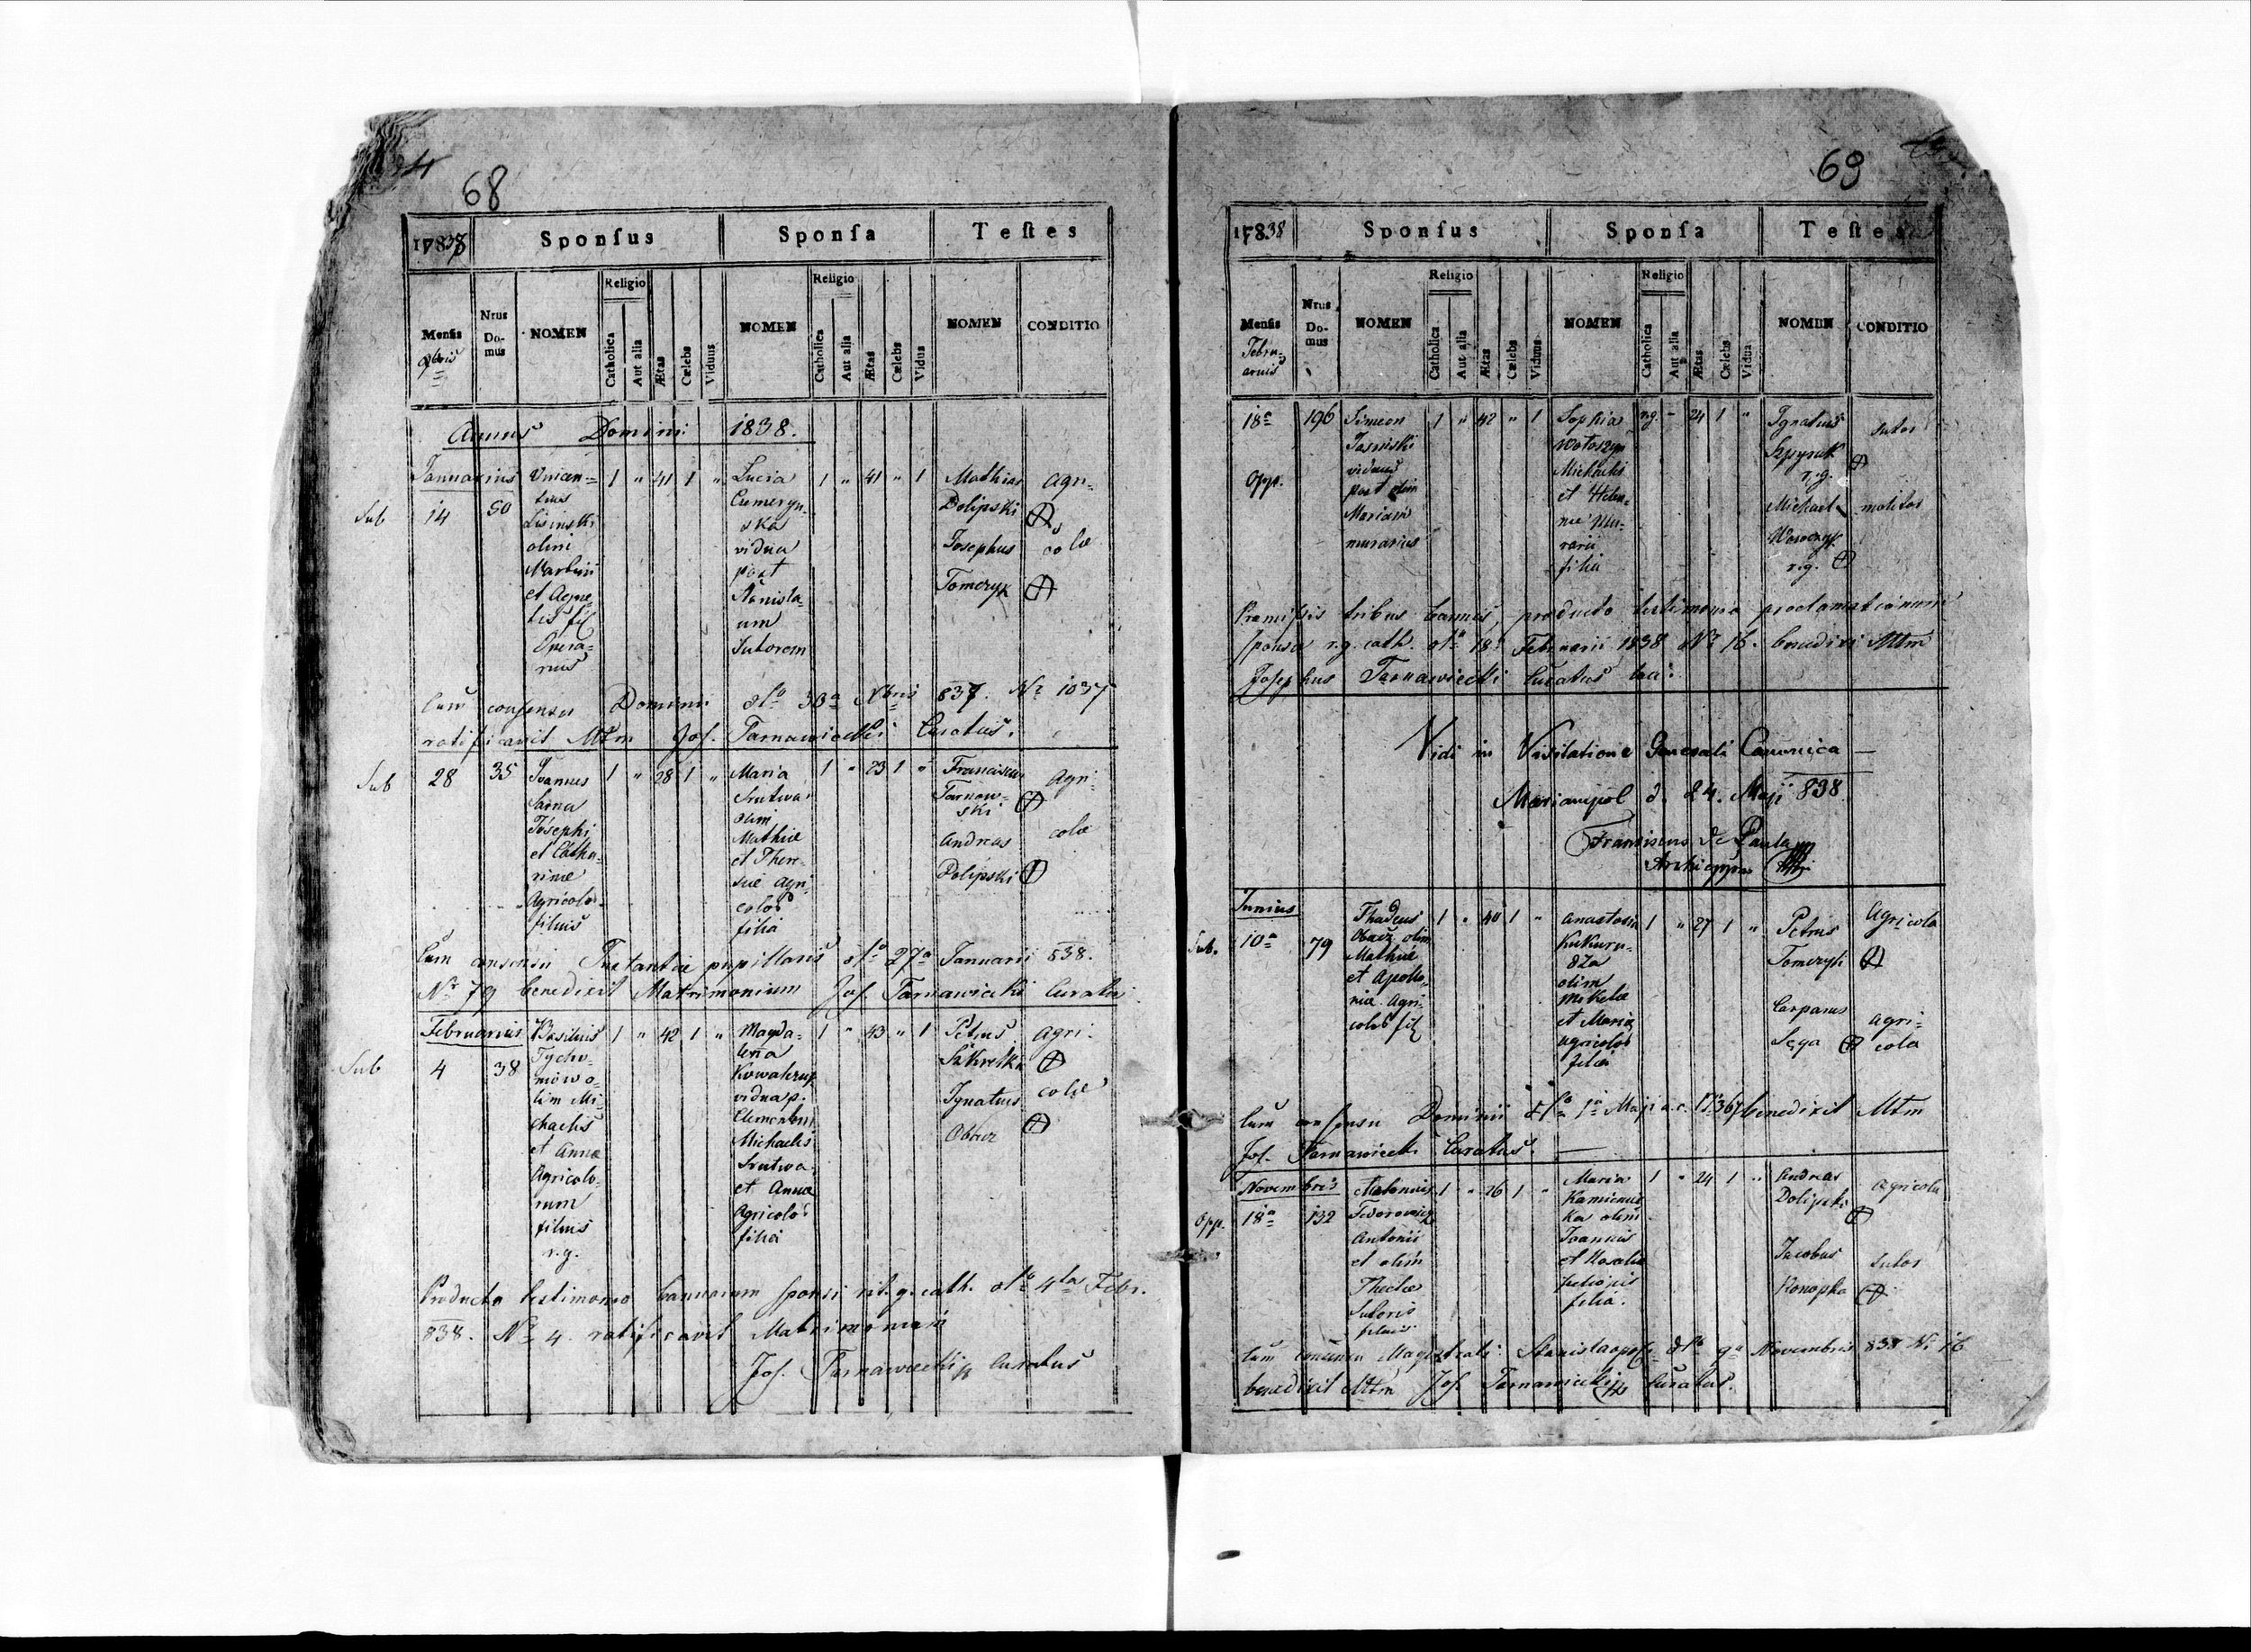 68
17837
Sponſus
Sponſa
Teſtes
Menſis
Nrus Domus
NOMEN
Religio
Catholica
Aut alia
Ætas
Cælebs
Viduus
NOMEN
Religio
Catholica
Aut alia
Ætas
Cælebs
Vidua
NOMEN
CONDITIO
Annus Domini 1838.
Januarius
Sub 14 50
Vincen=
tius
Lisinski
olim
Martini
et Agne
tis fil
Opera=
rius
1 " 41 1 "
Lucia
vidua
post
Stanisla=
um
Sutorem
1 " 41 " 1
Mathias
Dolipski
Josephus
Tomczyk
Agri=
colæ
Cum consensu Dominii dto 30a Xbris 837. Nr 1037
ratificavit Mtm Jos. Tarnawiecki Curatus.
Sub 28 35
Joannes
Sarna
Josephi
et Catha=
rinæ
Agricolo
filius
1 " 28 1 "
Maria
Srutwa
olim
Mathiæ
et There
siæ Agri
colos
filia
1 " 23 1 "
Franciscus
Tarnow=
ski
Andreas
Dolipski
Agri=
colæ
Cum consensu Instantiæ pupillaris dto 27a Januarii 838.
Nr 79 benedixit Matrimonium Jos. Tarnawiecki Curatus
Februarius
Sub 4 38
Basilius
Tycho
niów o=
lim Mi=
chaelis
et Annæ
Agricolo=
rum
filius
r.g.
1 " 42 1 "
Magda=
lena
vidua p.
Clementem
Michaelis
Srutwa
et Annæ
Agricolo
filia
1 " 43 " 1
Petrus
Ignatius
Obacz
Agri=
colæ
Producto testimonio bannorum sponsi rit. g. cath. dto 4ta Febr.
838. Nr 4. ratificavit Matrimonium
Jos. Tarnawiecki Curatus
69
17838
Sponſus
Sponſa
Teſtes
Menſis
Febru=
arius
Nrus Domus
NOMEN
Religio
Catholica
Aut alia
Ætas
Cælebs
Viduus
NOMEN
Religio
Catholica
Aut alia
Ætas
Cælebs
Vidua
NOMEN
CONDITIO
18a 196
Opp.
Simeon
Jasinski
viduus
post olim
Mariam
murarius
1 " 42 " 1
Sophia
Wołoszyn
Michaelis
et Hele
næ Mu=
rarii
filia
r.g. - 24 1 "
Ignatius
r.g.
Michael
r.g.
sutor
molitor
Præmissis tribus bannis, producto testimonio proclamationum
sponsæ r.g. cath. dto 18a Februarii 1838 Nr 16. benedixi Mtm
Josephus Tarnawiecki Curatus loci.
Vidi in Visitatione Generali Canonica
Mariampol d. 24. Maji 838
Franciscus de Paula
Archieppus
Junius
Sub. 10a 79
Thadeus
Obacz olim
Mathiæ
et Apollo
niæ Agri=
colos fil
1 " 40 1 "
Anastasia
Kukuru=
dza
olim
et Maria
Agricolos
filia
1 " 27 1 "
Petrus
Tomczyk
Casparus
Sęga
Agricola
agri=
cola
Cum consensu Dominii dto 1a Maji a.c. Nro 367 benedixit Mtm
Jos. Tarnawiecki Curatus.
Novembris
Opp. 18a 132
Antonius
Fedorowicz
Antonii
et olim
Theclæ
Sutoris
filius
1 " 26 1 "
Maria
Kamiens
ka olim
Joannis
et Rosaliæ
filia.
1 " 24 1 "
Andreas
Dolipski
Jacobus
Konopka
Agricola
Sutor
Cum consensu Magistrati Stanislaopol. dto 9a Novembris 838 Nr 16
benedixit Mtm Jos. Tarnawiecki Curatus.